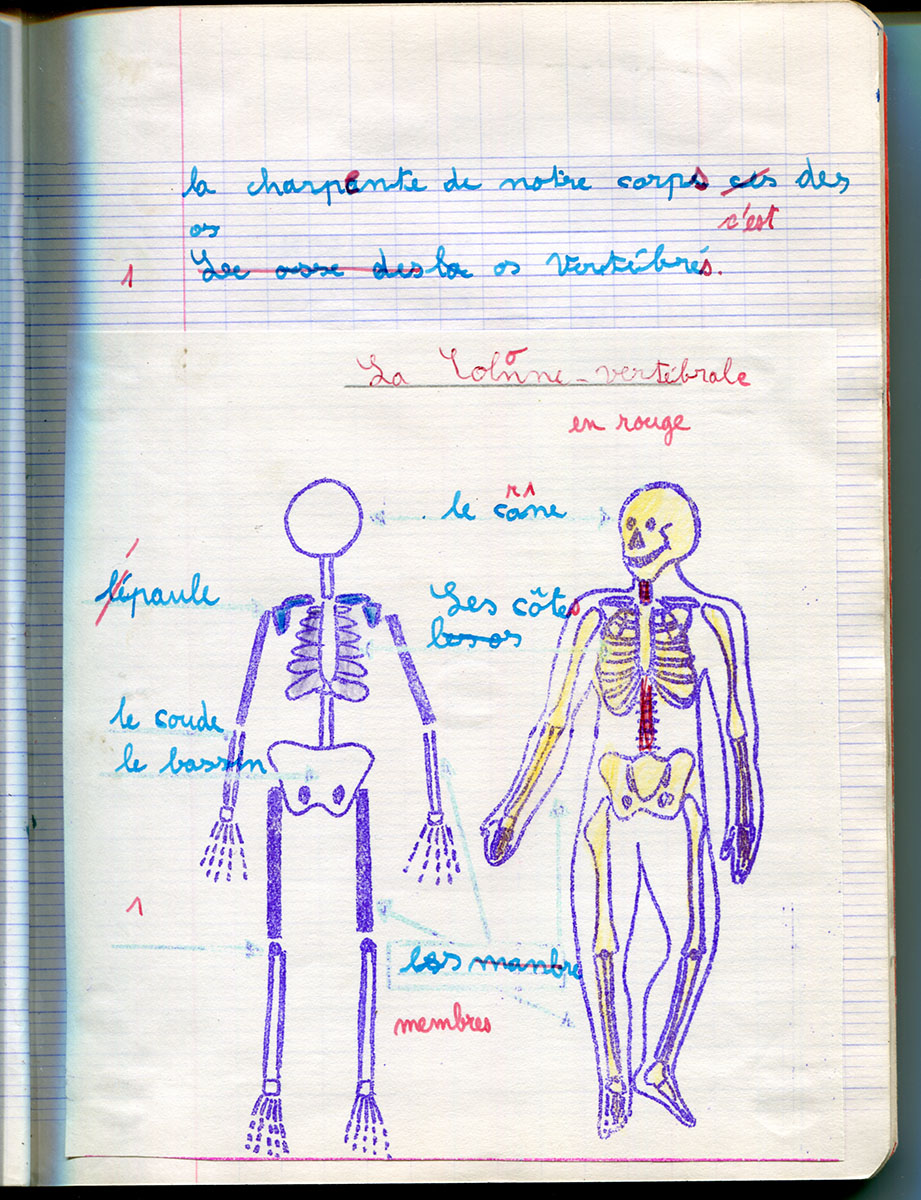 la charpente de notre corps ces des
c'est
os
1 Les osse des la os vertébrés.
La Colonne-vertébrale
en rouge
le crâne
l'épaule
Les côtes
les os
le coude
le bassin
1
les manbre
membres